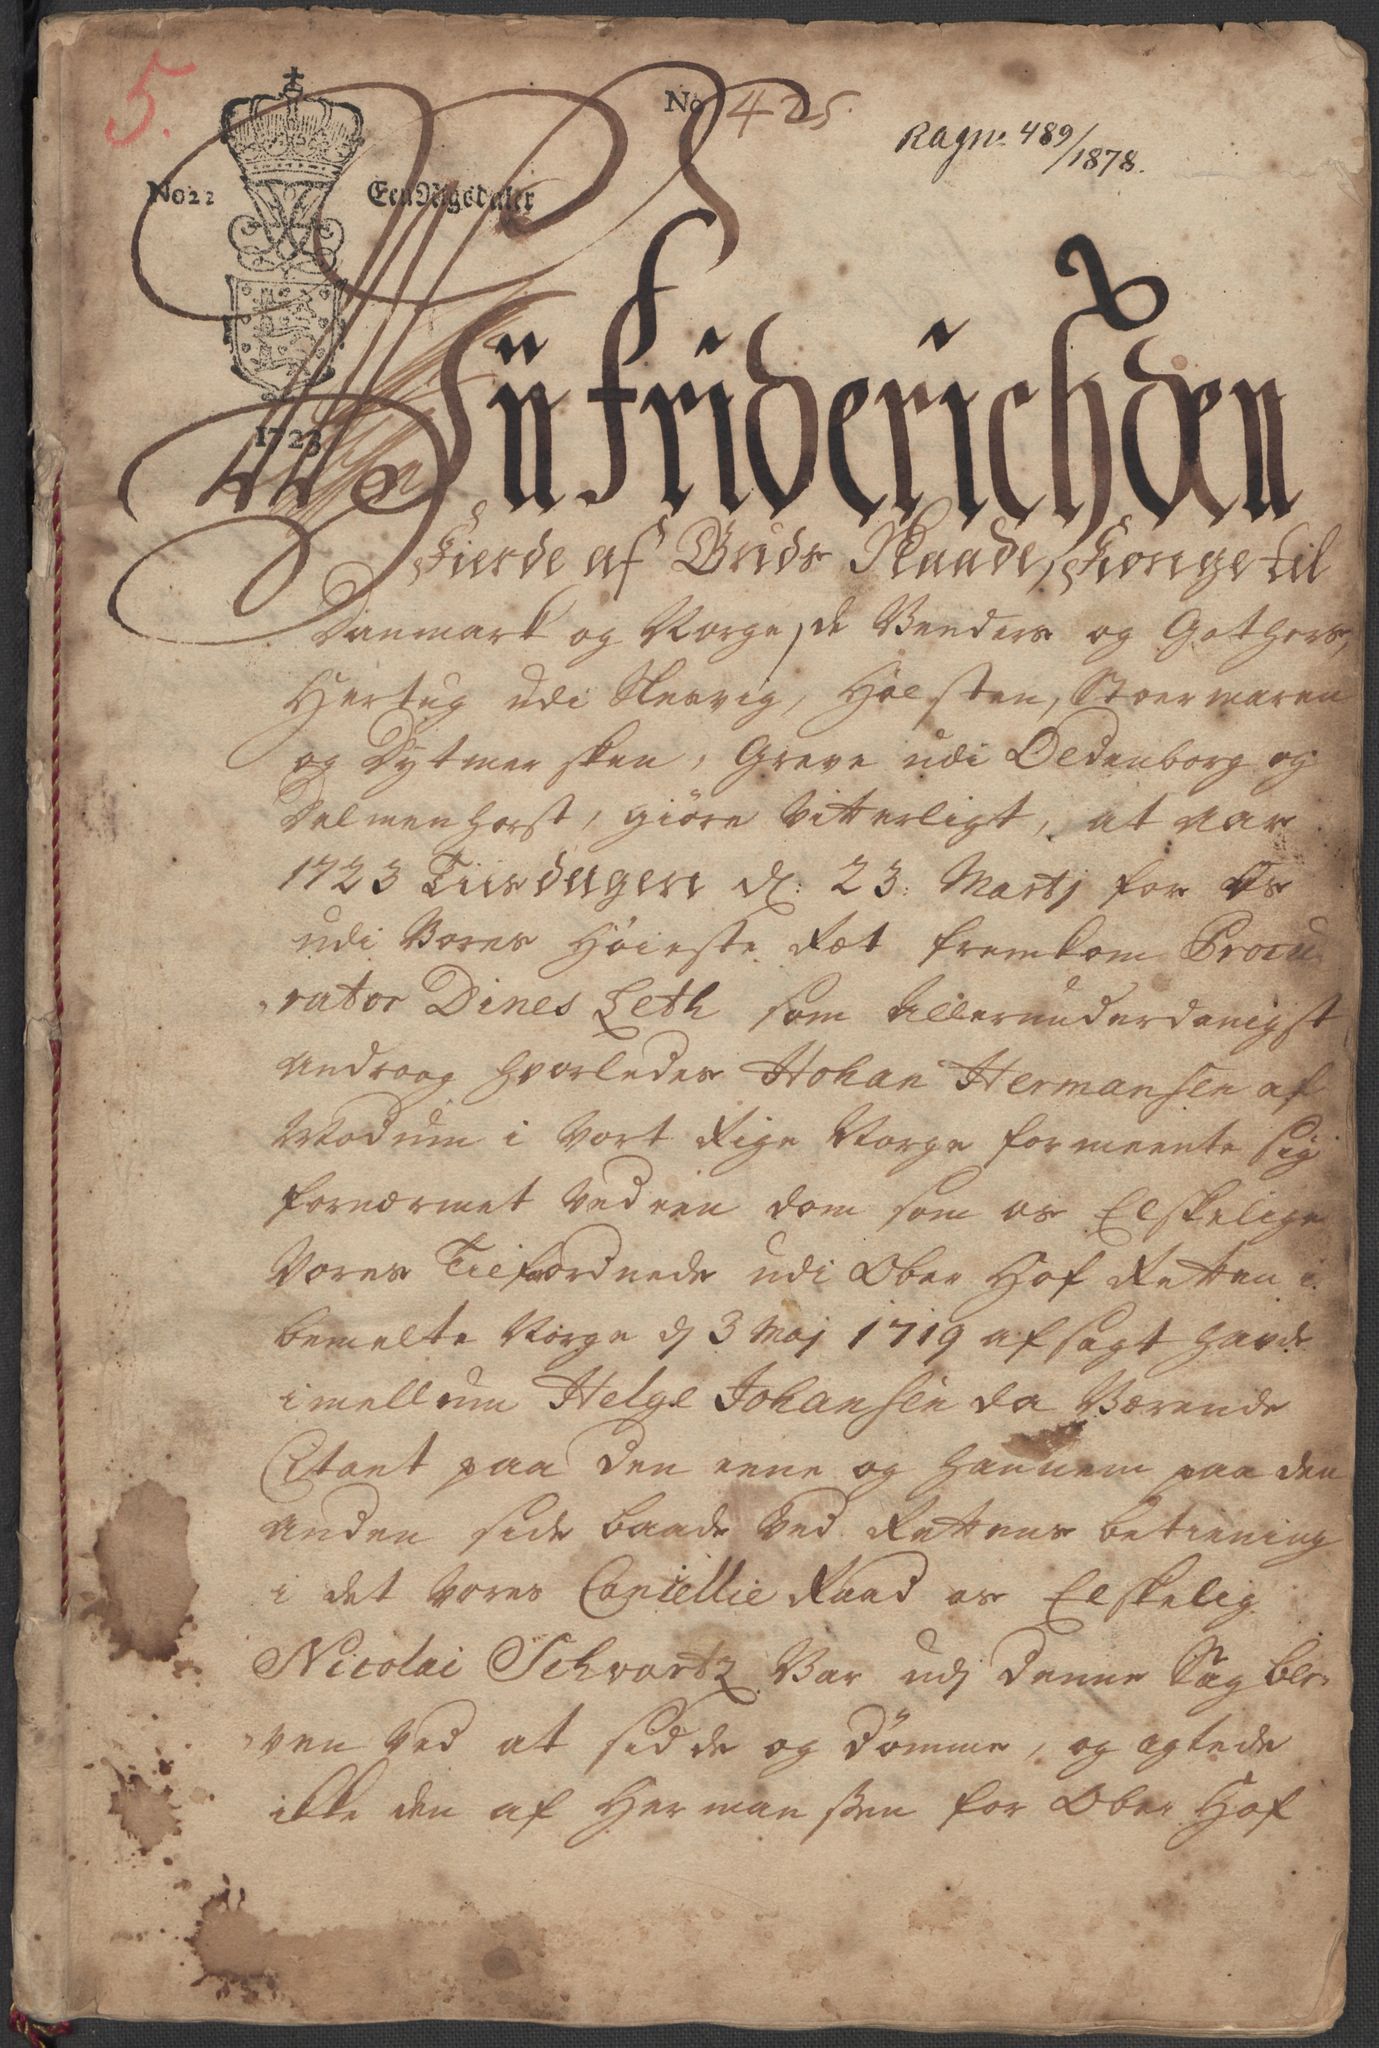 5.
No 425.
Ragn. 489/1878.
No 22 Een Rigsdaler
1723
Wii Friderich den
Fierde af Guds Naade, Konge til
Danmark og Norge, de Venders og Gothers,
Hertug udi Slesvig, Holsten, Stoermaren
og Dytmersken, Greve udi Oldenborg og
Delmenhorst, giöre Vitterligt, at Aar
1723 Tiisdagen d: 23: Martj for Os
udi Vores Höieste Ræt fremkom Procu-
rator Dines Leth som Allerunderdanigst
Androg hvorledes Hohan Hermansen af
Modum i Vort Rige Norge formeente sig
fornærmet Ved een dom som os Elskelige
Vores Tilforordnede udi Ober Hof Retten i
bemelte Norge dj 3 Maj 1719 afsagt havde
imellum Helge Johansen da Værende
Citant paa den eene og hannem paa den
Anden side baade Ved Rettens betiening
i det Vores Cancellie Raad os Elskelig
Nicolai Schvartz Var udj denne Sag ble-
ven Ved at sidde og dömme, og agtede
ikke den af Hermanssen for Ober Hof